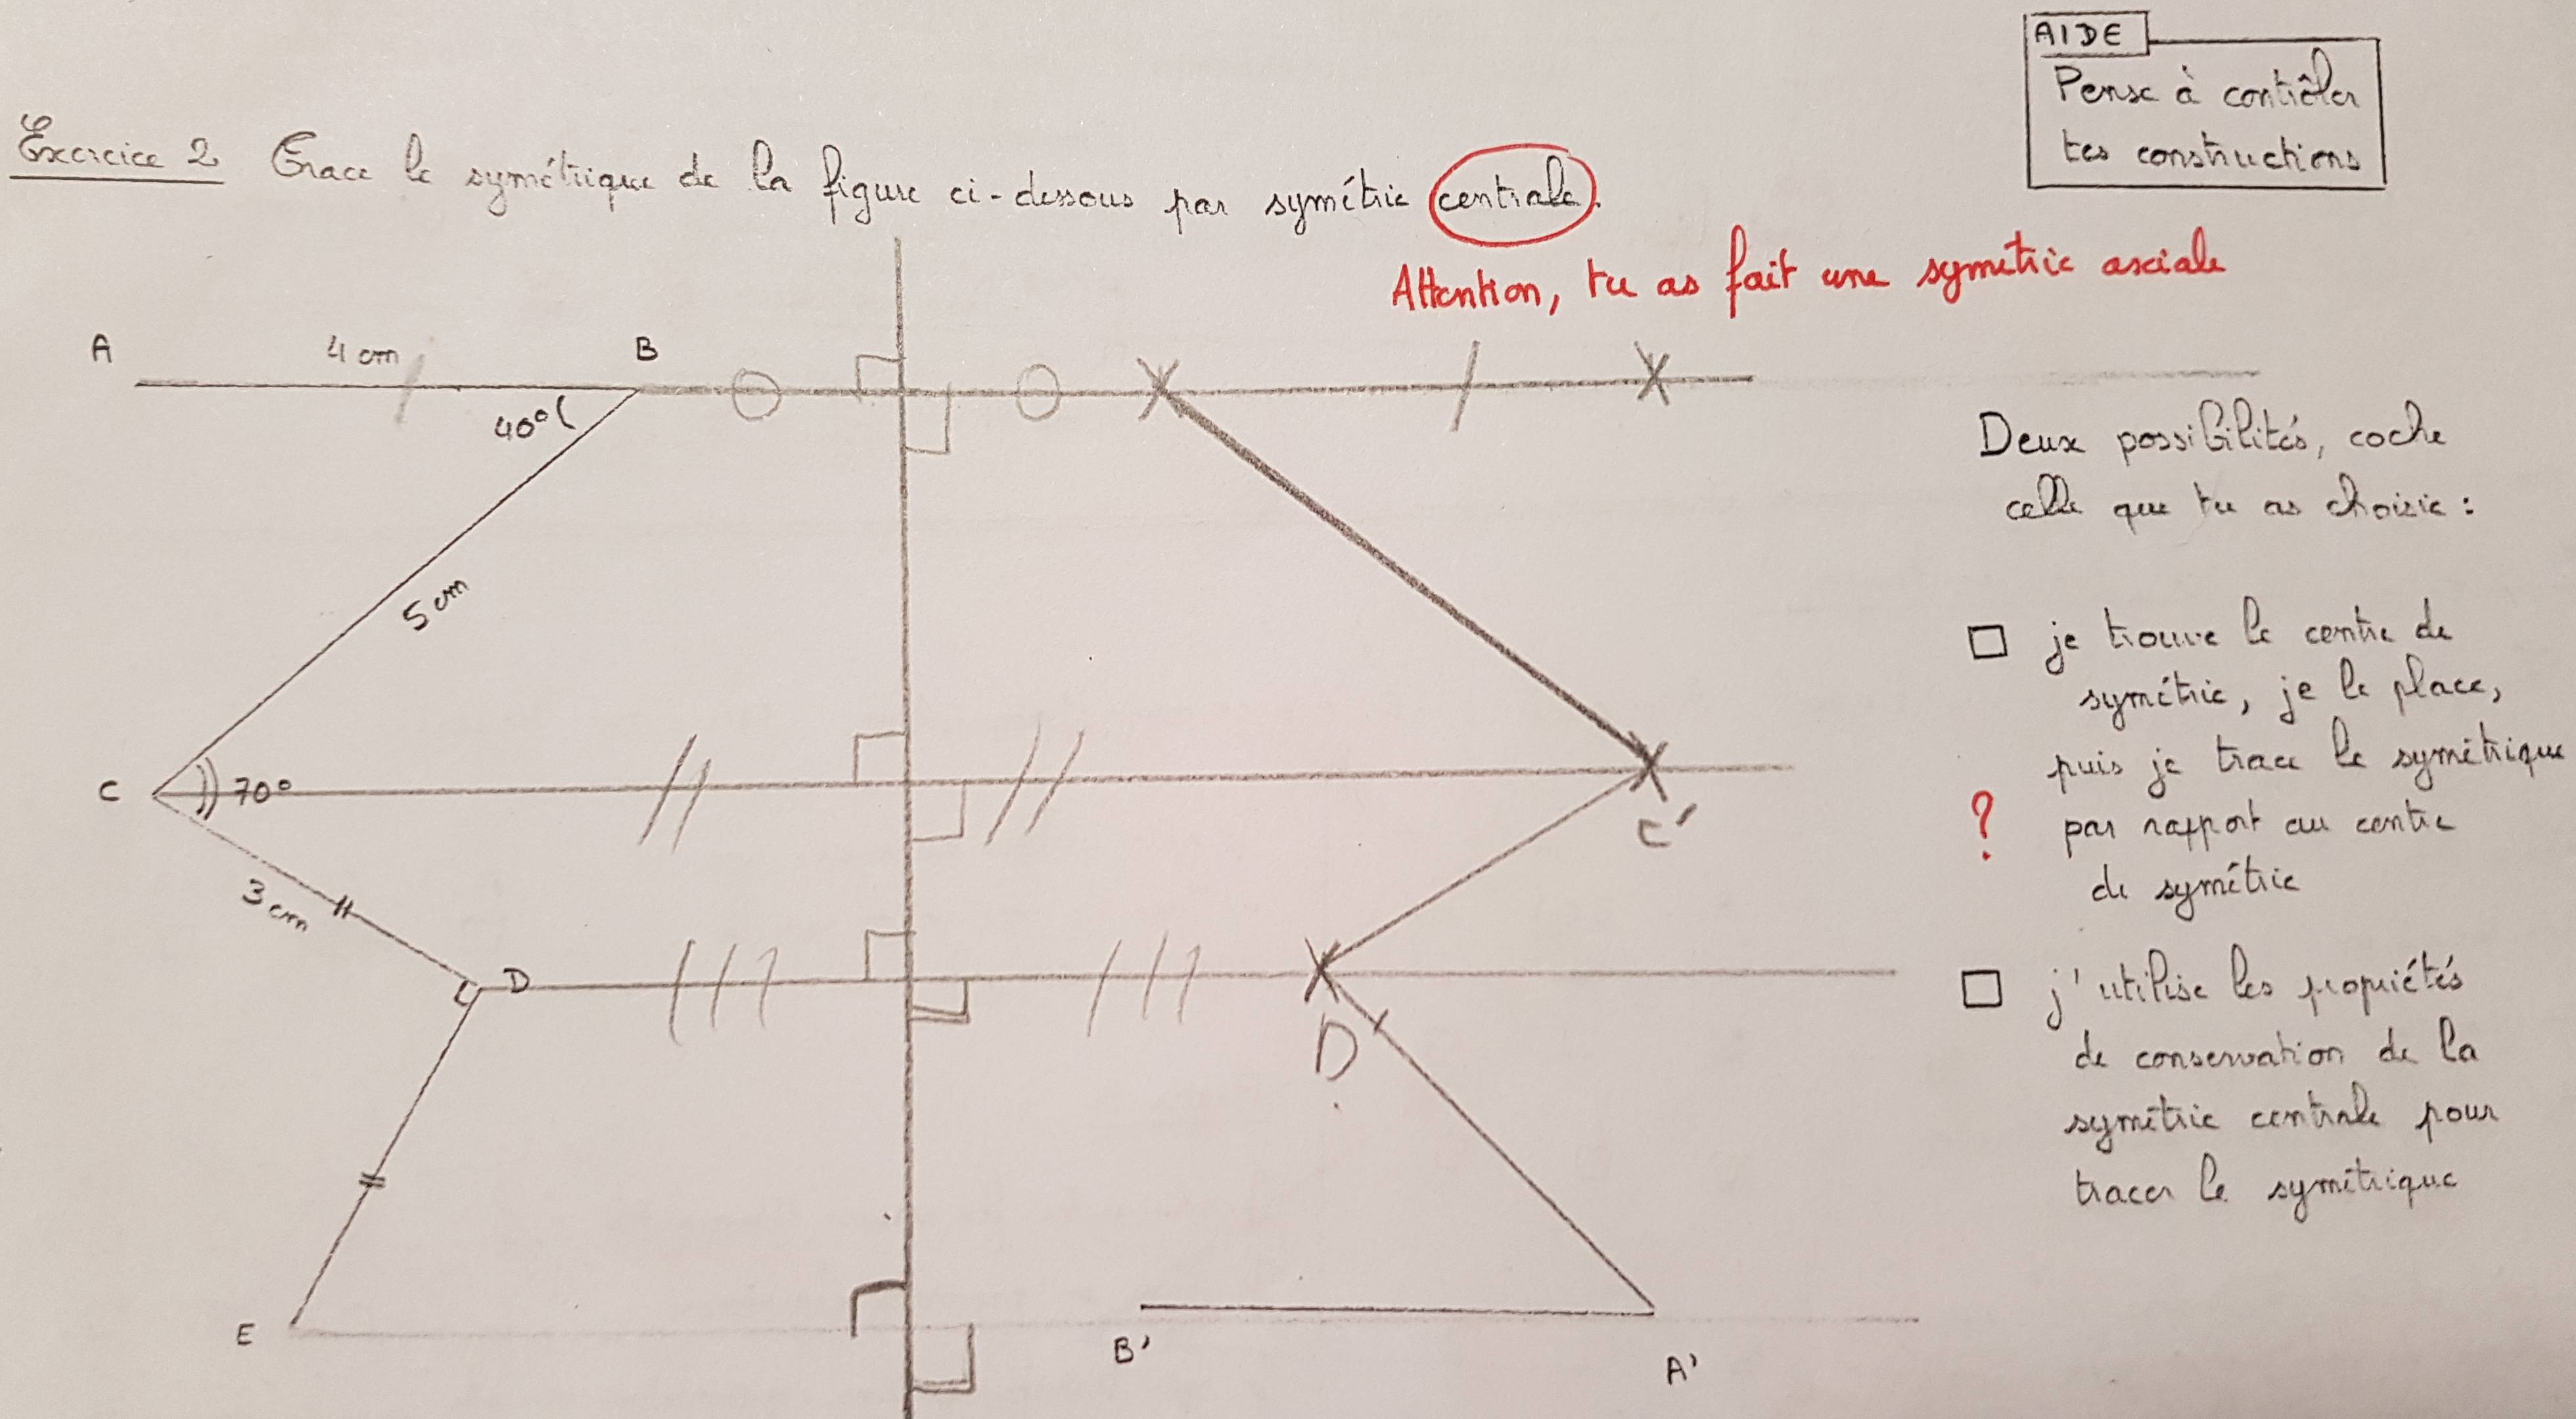 AIDE
Pense à contrôler
tes constructions
Exercice 2 Trace le symétrique de la figure ci-dessous par symétrie centrale.
Attention, tu as fait une symétrie axiale
A 4 cm B
40°
5 cm
C 70°
C'
3 cm
D
D
E
B'
A'
Deux possibilités, coche
celle que tu as choisie :
je trouve le centre de
symétrie, je le place,
puis je trace le symétrique
? par rapport au centre
de symétrie
j'utilise les propriétés
de conservation de la
symétrie centrale pour
tracer le symétrique